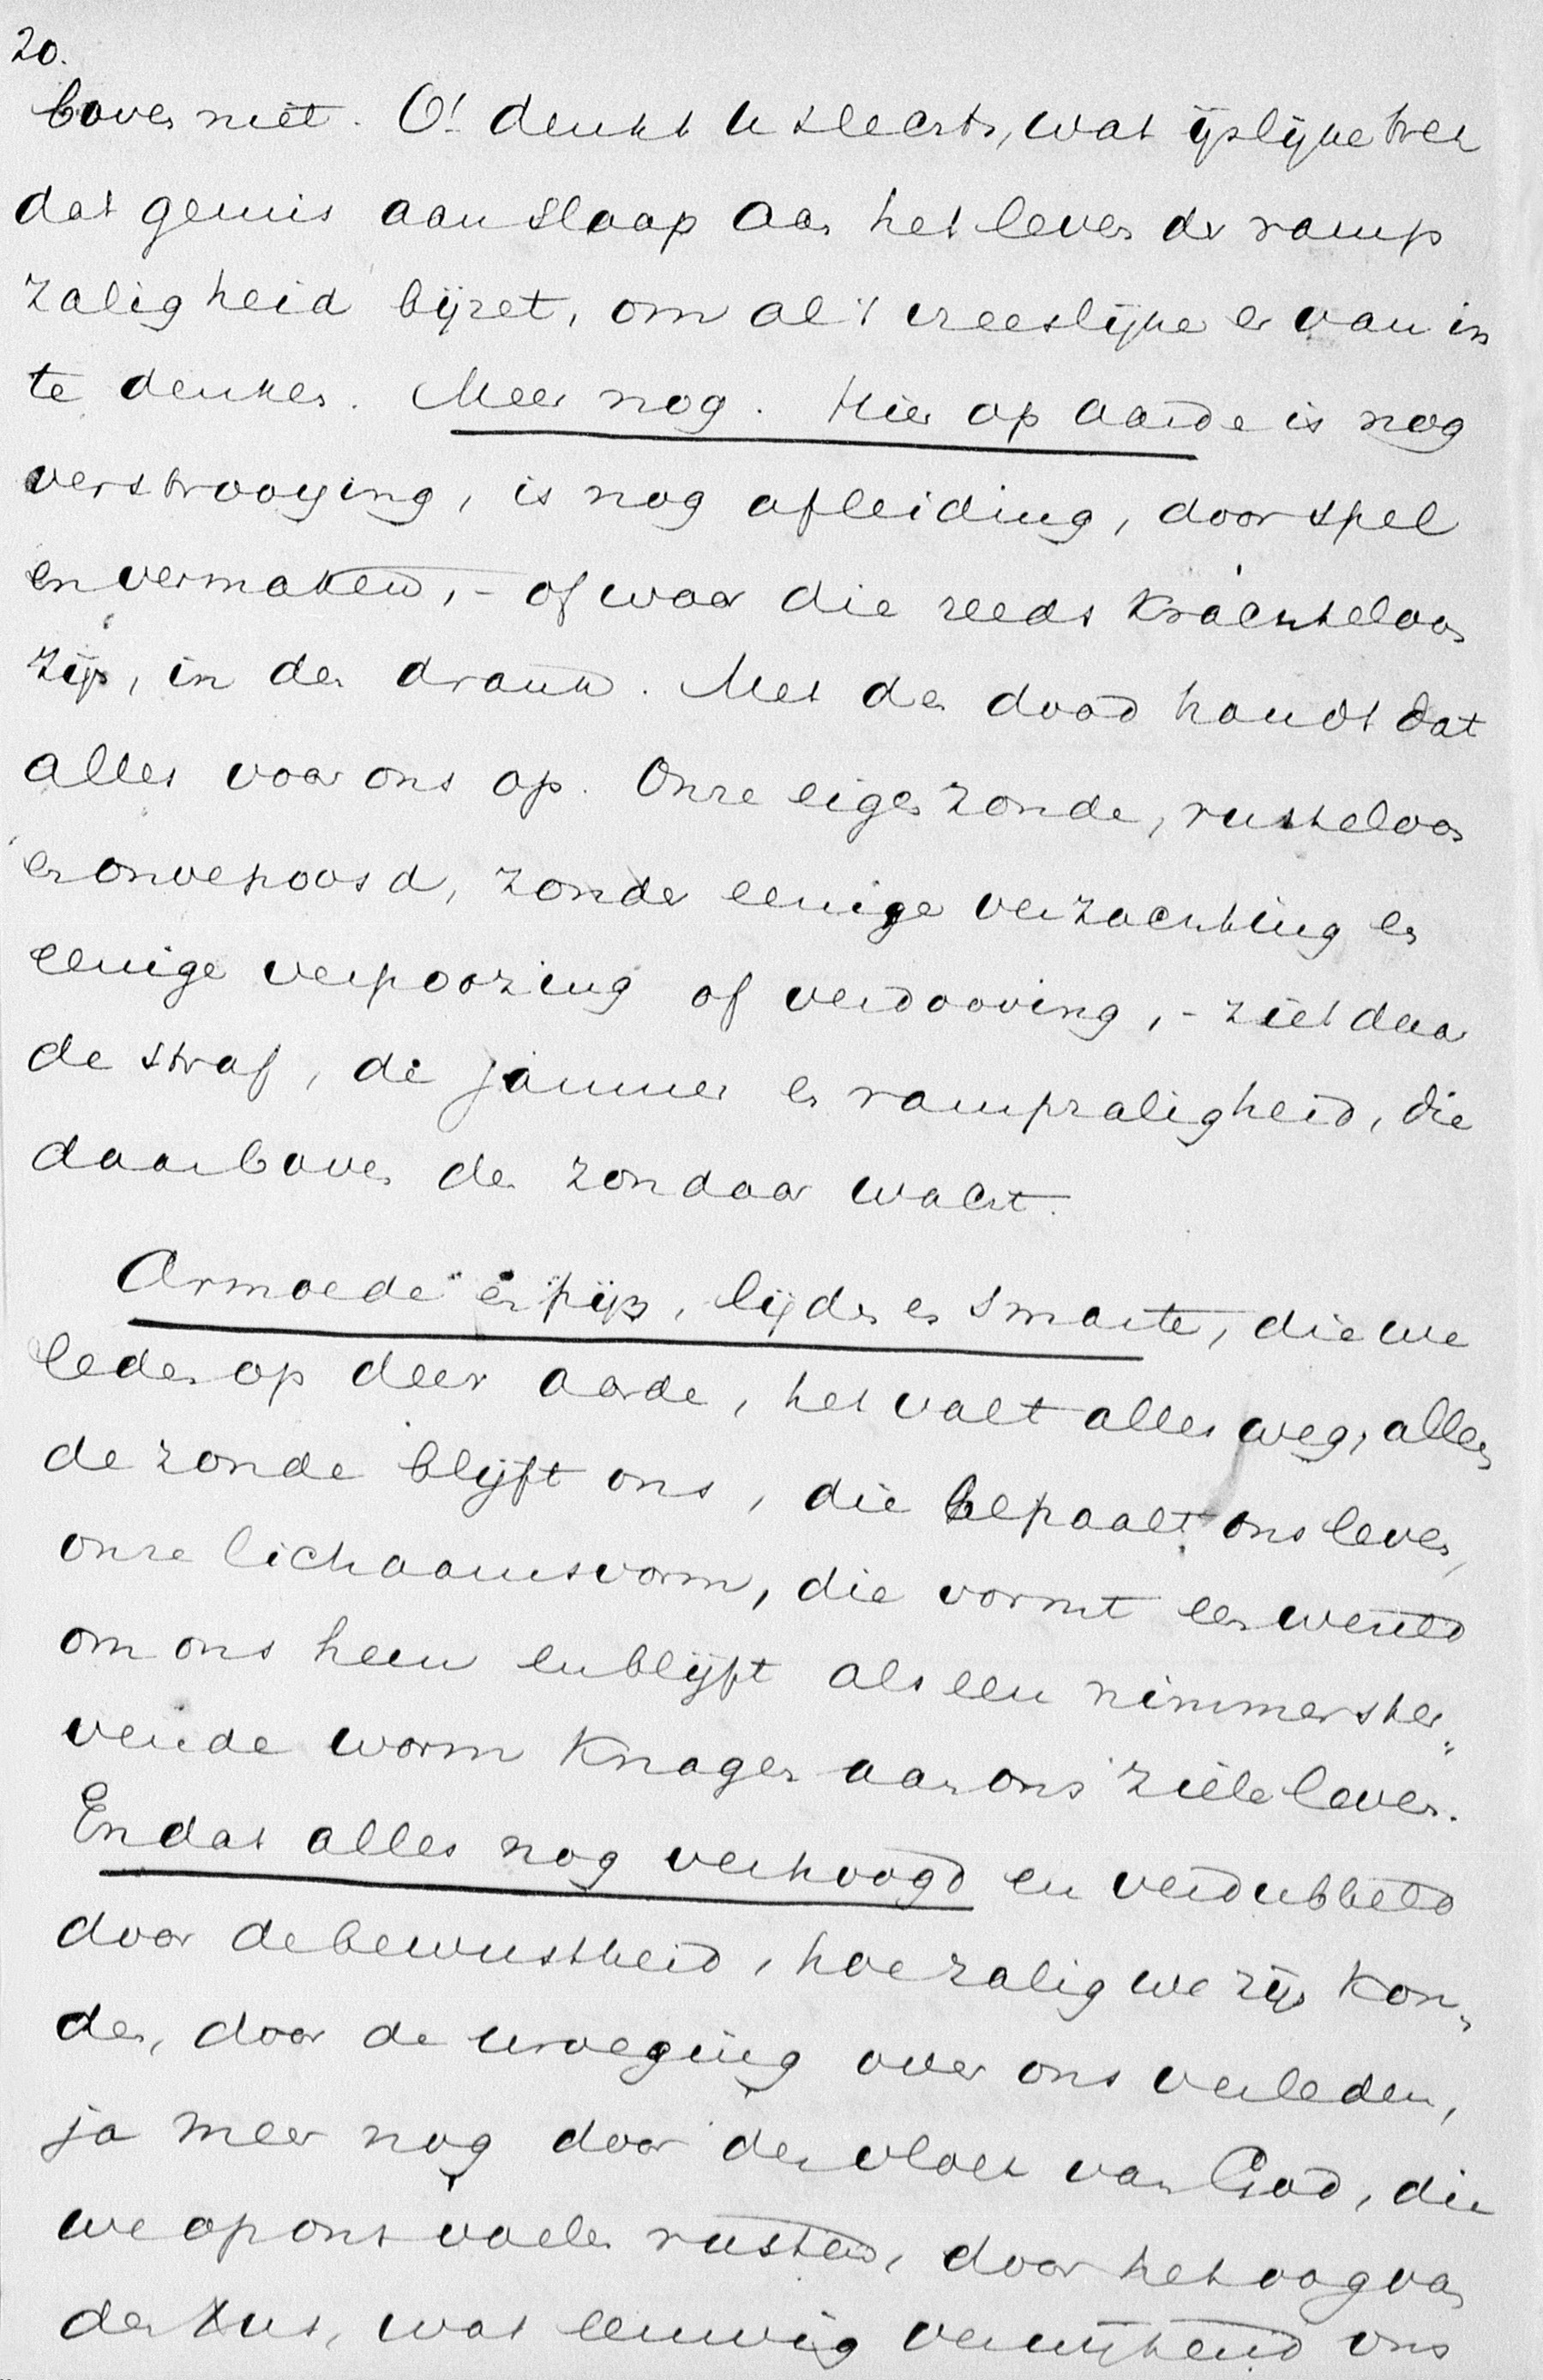 20.
boven niet. O! denkt u slechts, wat ijslijke trek
dat gemis aan slaap aan het leven der ramp
zaligheid bijzet, om al 't vreeslijke er van in
te denken. Meer nog. Hier op aarde is nog
verstrooying, is nog afleiding, door spel
en vermaken, - of waar die reeds krachteloos
zijn, in den drank. Met den dood houdt dat
alles voor ons op. Onze eigen zonde, rusteloos
en onverpoosd, zonder eenige verzachting en
eenige verpoozing of verdooving, - ziet daar
de straf, de jammer en rampzaligheid, die
daarboven den zondaar wacht.
Armoede en pijn, lijden en smarte, die we
leden op deez' aarde, het valt alles weg, alleen
de zonde blijft ons, die bepaalt ons leven,
onze lichaamsvorm, die vormt een wereld
om ons heen en blijft als een nimmerster„
vende worm knagen aan ons zieleleven.
En dat alles nog verhoogd en verdubbeld
door de bewustheid, hoe zalig we zijn kon„
den, door de wroeging over ons verleden,
ja meer nog door den vloek van God, die
we op ons voelen rusten, door het oog van
den Zus, wat eeuwig verwijtend ons